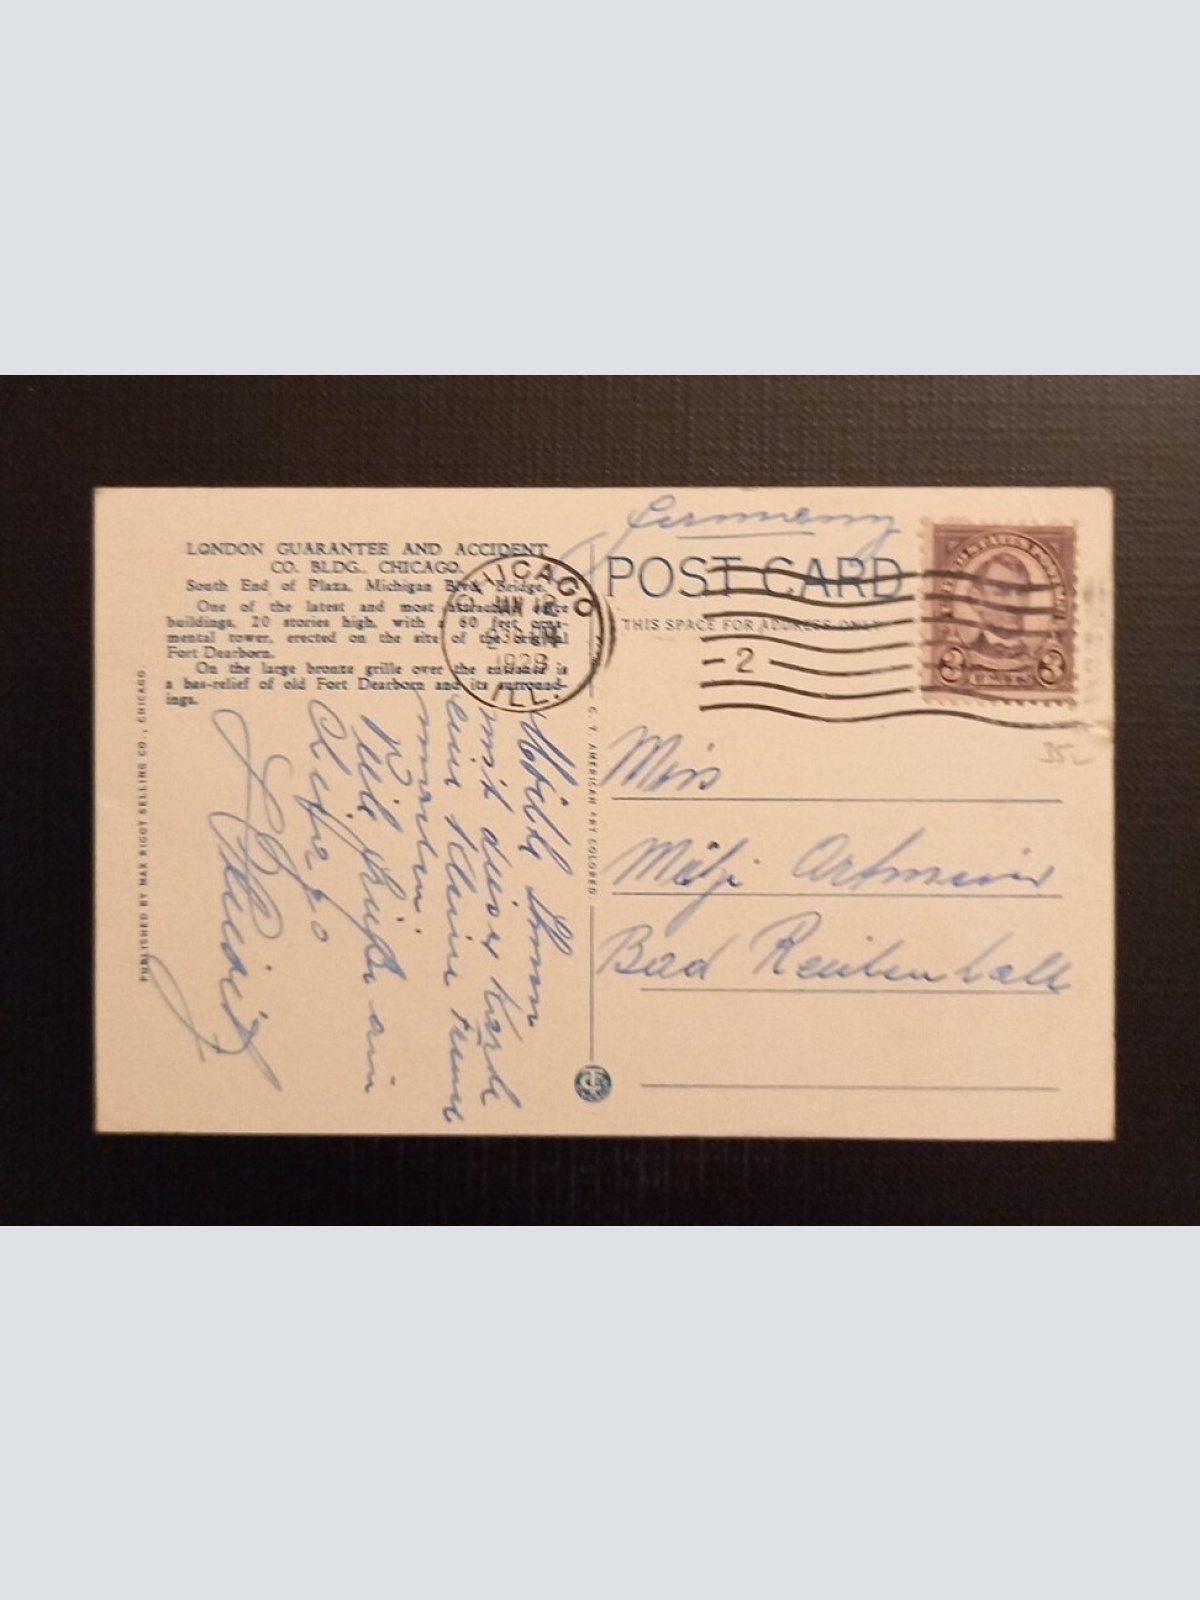 LONDON GUARANTEE AND ACCIDENT
CO. BLDG., CHICAGO.
South End of Plaza, Michigan Blvd. Bridge.
One of the latest and most attractive office
buildings, 20 stories high, with a 60 feet orna-
mental tower, erected on the site of the original
Fort Dearborn.
On the large bronze grille over the entrance is
a bas-relief of old Fort Dearborn and its surround-
ings.
PUBLISHED BY MAX RIGOT SELLING CO., CHICAGO.
mit dieser Karte
eine kleine
machen.
Viele Grüße aus
Chicago
CHICAGO
JAN 12
1929
ILL.
C. T. AMERICAN ART COLORED
Germany
POST CARD
THIS SPACE FOR ADDRESS ONLY
2
UNITED STATES POSTAGE
3 CENTS 3
35
Miss
Mitzi
Bad Reichenhall